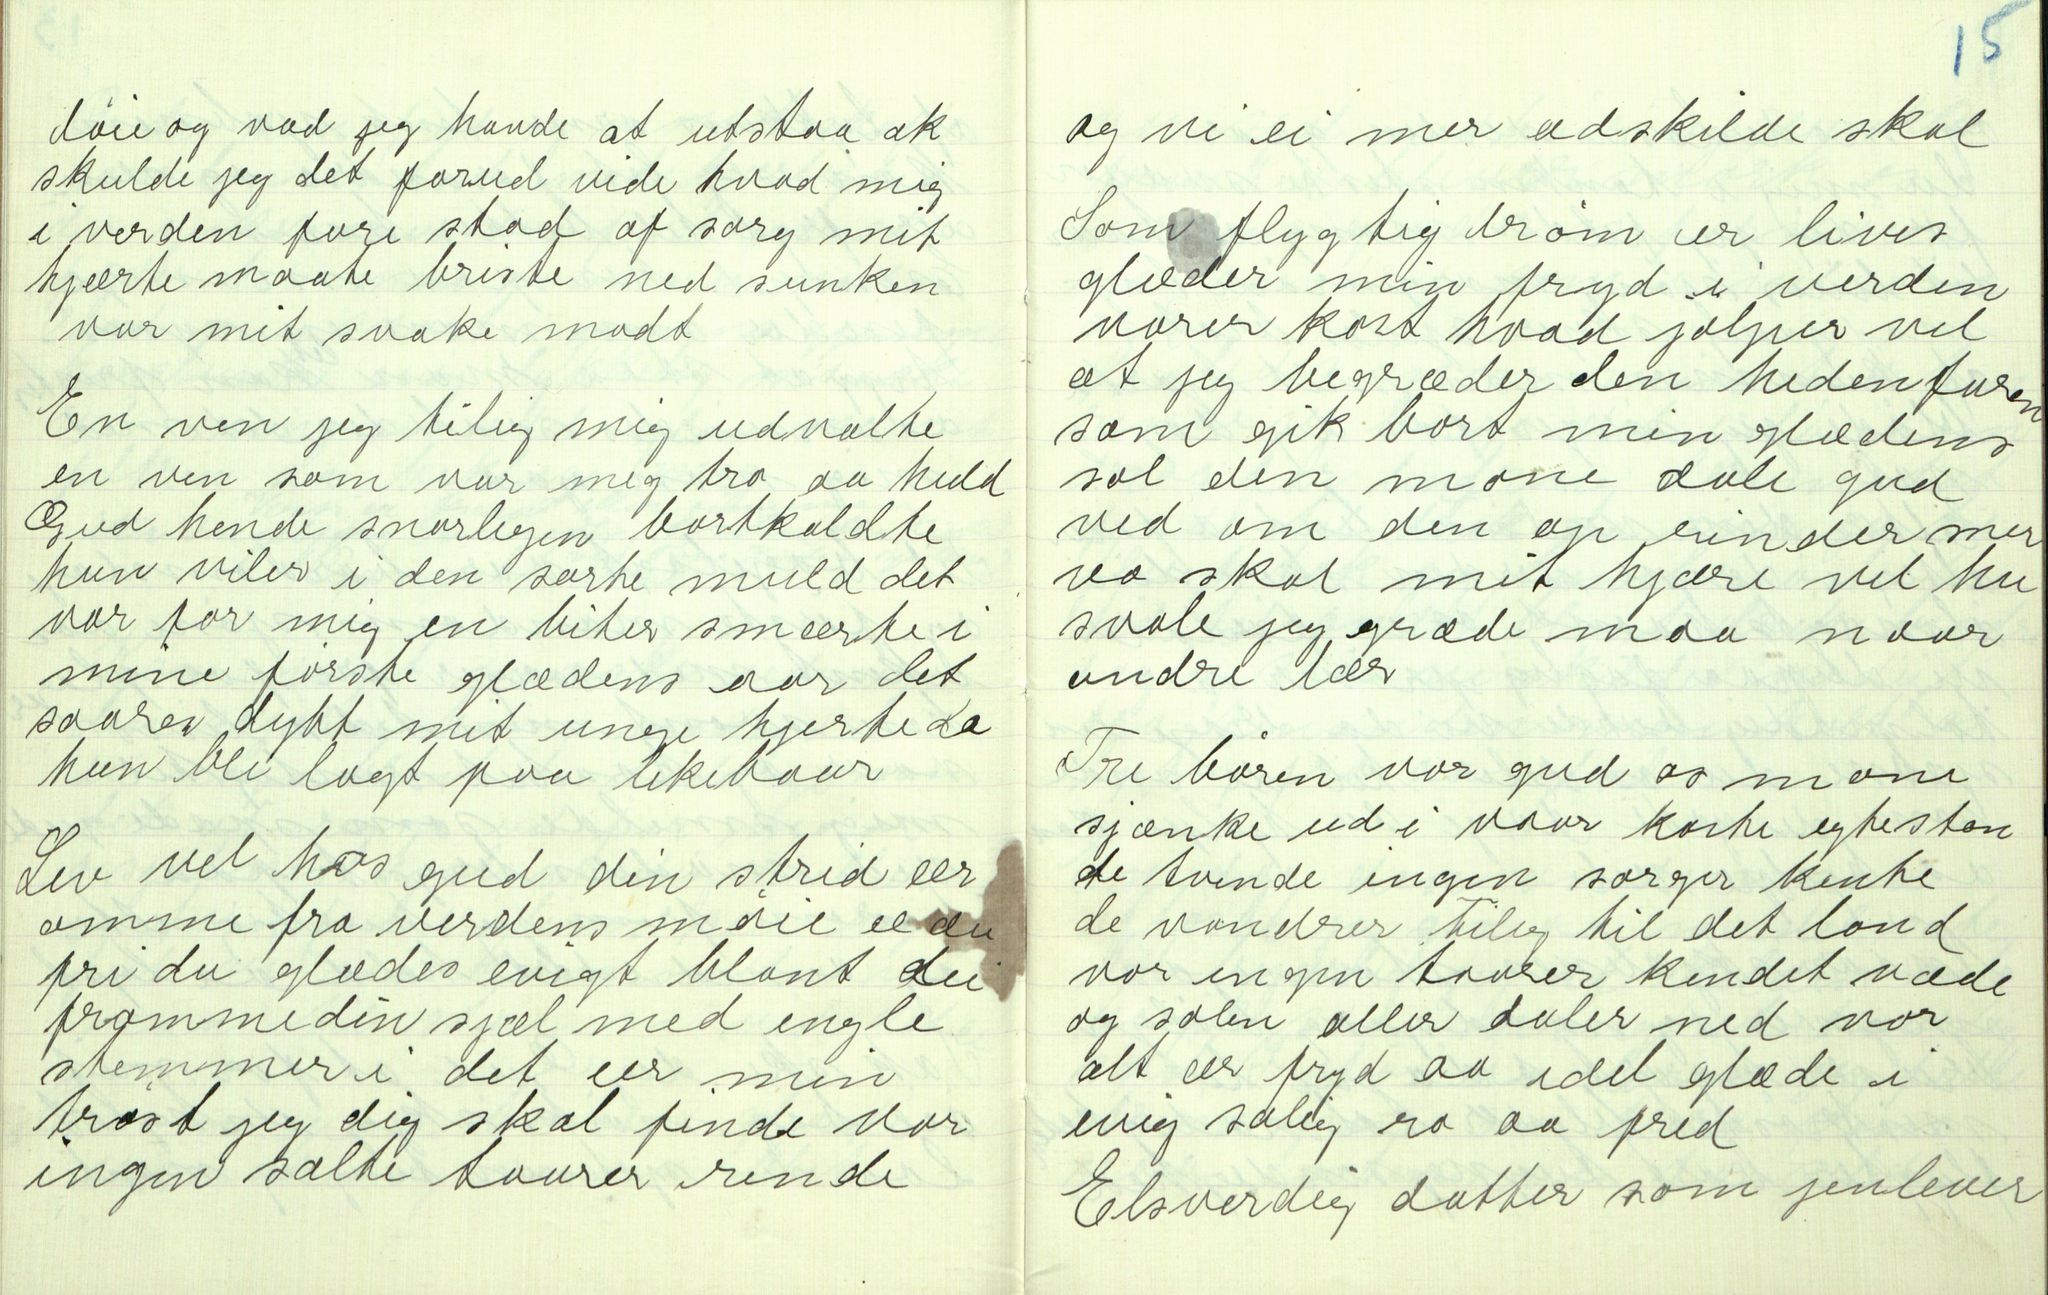 döie og vad jeg havde at utstaa ak
skulde jeg det forud vide hvad mig
i verden fore stod af sorg mit
hjærte maate briste ned sunken
var mit svake modt
En ven jeg tilig mig udvalte
en ven som var meg tro aa huld
Gud hende snarligen bortkaldte
hun viler i den sorte muld det
var for mig en biter smærte i
mine förste glædens aar det
saarer dybt mit unge hjerte da
hun ble lagt paa likebaar
Lev vel hos gud din strid ær
omme fra verdens möie æ du
fri du glædes evigt blant dei
frommedin sjæl med engle
stemmer i det ær min
tröst jeg dig skal finde var
ingen salte taarer rende
15
og vi ei mer adskilde skal
Som flygtig dröm ær lives
glæder min fryd i verden
varer kort hvad jalper vel
at jeg begræder den hedenfaren
som gik bort min glædens
sol den mone dale gud
ved om den op rinder mer
va skal mit hjære vel hu
svale jeg græde maa naar
andre lær
Tre bören var gud os mone
sjænke ud i vaar korte egtestan
de tvende ingen sorger kente
de vandrer tilig til det land
var ingen taarer kindet væde
og solen aller daler ned var
alt ær fryd aa idel glæde i
evig salig ro aa fred
Elsverdig datter som jenlever